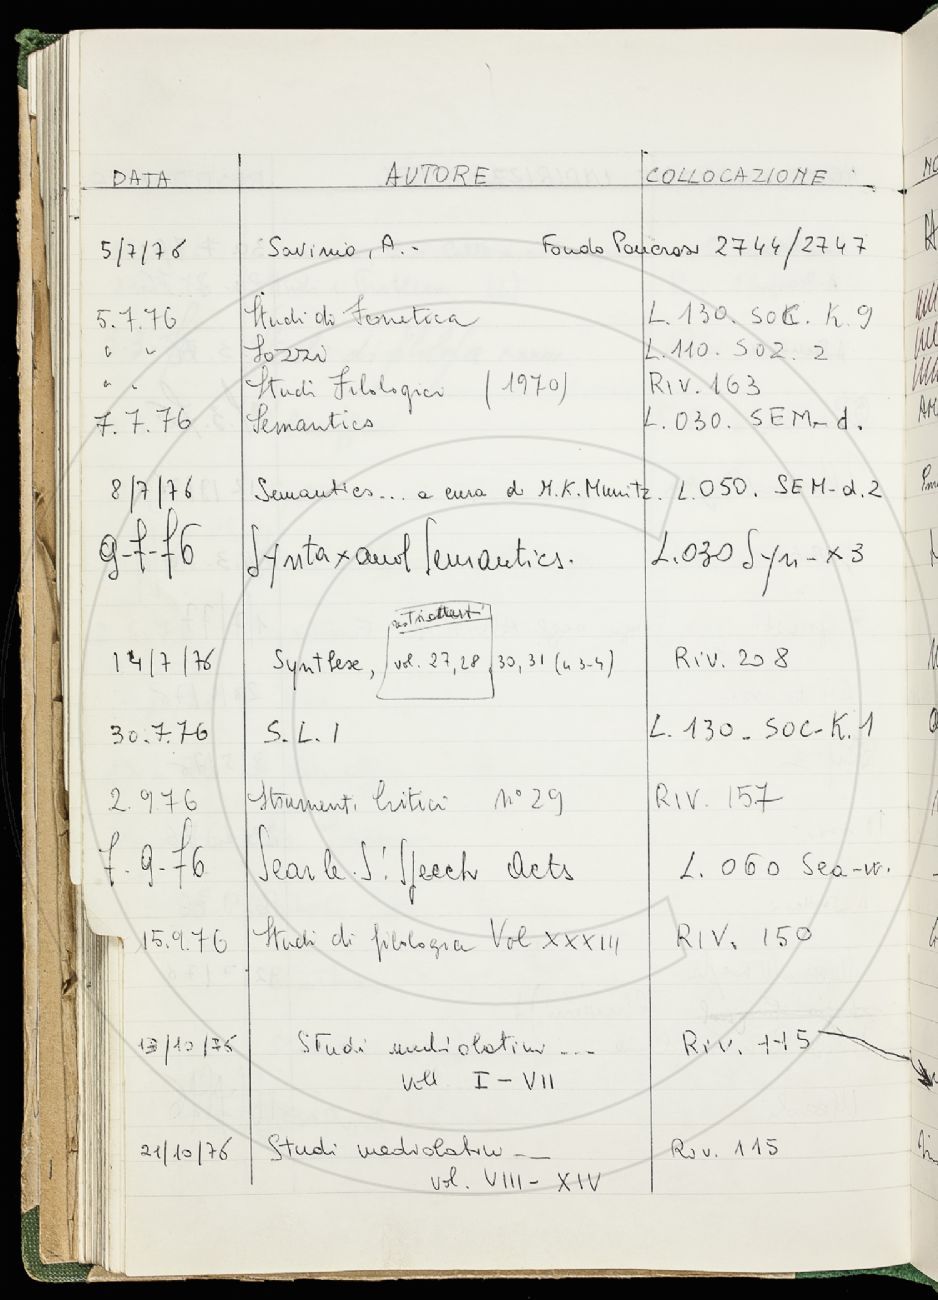 DATA AUTORE COLLOCAZIONE
5/7/76 Savinio, A. - Fondo Pancrazi 2744/2747
5.7.76 Studi di Fonetica L. 130. SOC. K. 9
" " Sozzi L. 110. SOZ. 2
" " Studi Filologici (1970) Riv. 163
7.7.76 Semantics L. 030. SEM-d.
8/7/76 Semantics... a cura di M.K. Munitz. L. 050. SEM-d.2
9-7-76 Syntax and Semantics. L. 030 Syn-x3
14/7/76 Synthese, vol. 27, 28, 30, 31 (n 3-4) Riv. 208
30.7.76 S.L.I L. 130. SOC-K.1
2.9.76 Strumenti Critici n° 29 RIV. 157
7.9-76 Searle. S! Speech Acts L. 060 Sea-w.
15.9.76 Studi di filologia Vol XXXIII RIV. 150
13/10/76 Studi mediolatini ... Riv. 115
voll I - VII
21/10/76 Studi mediolatini -- Riv. 115
vol. VIII - XIV